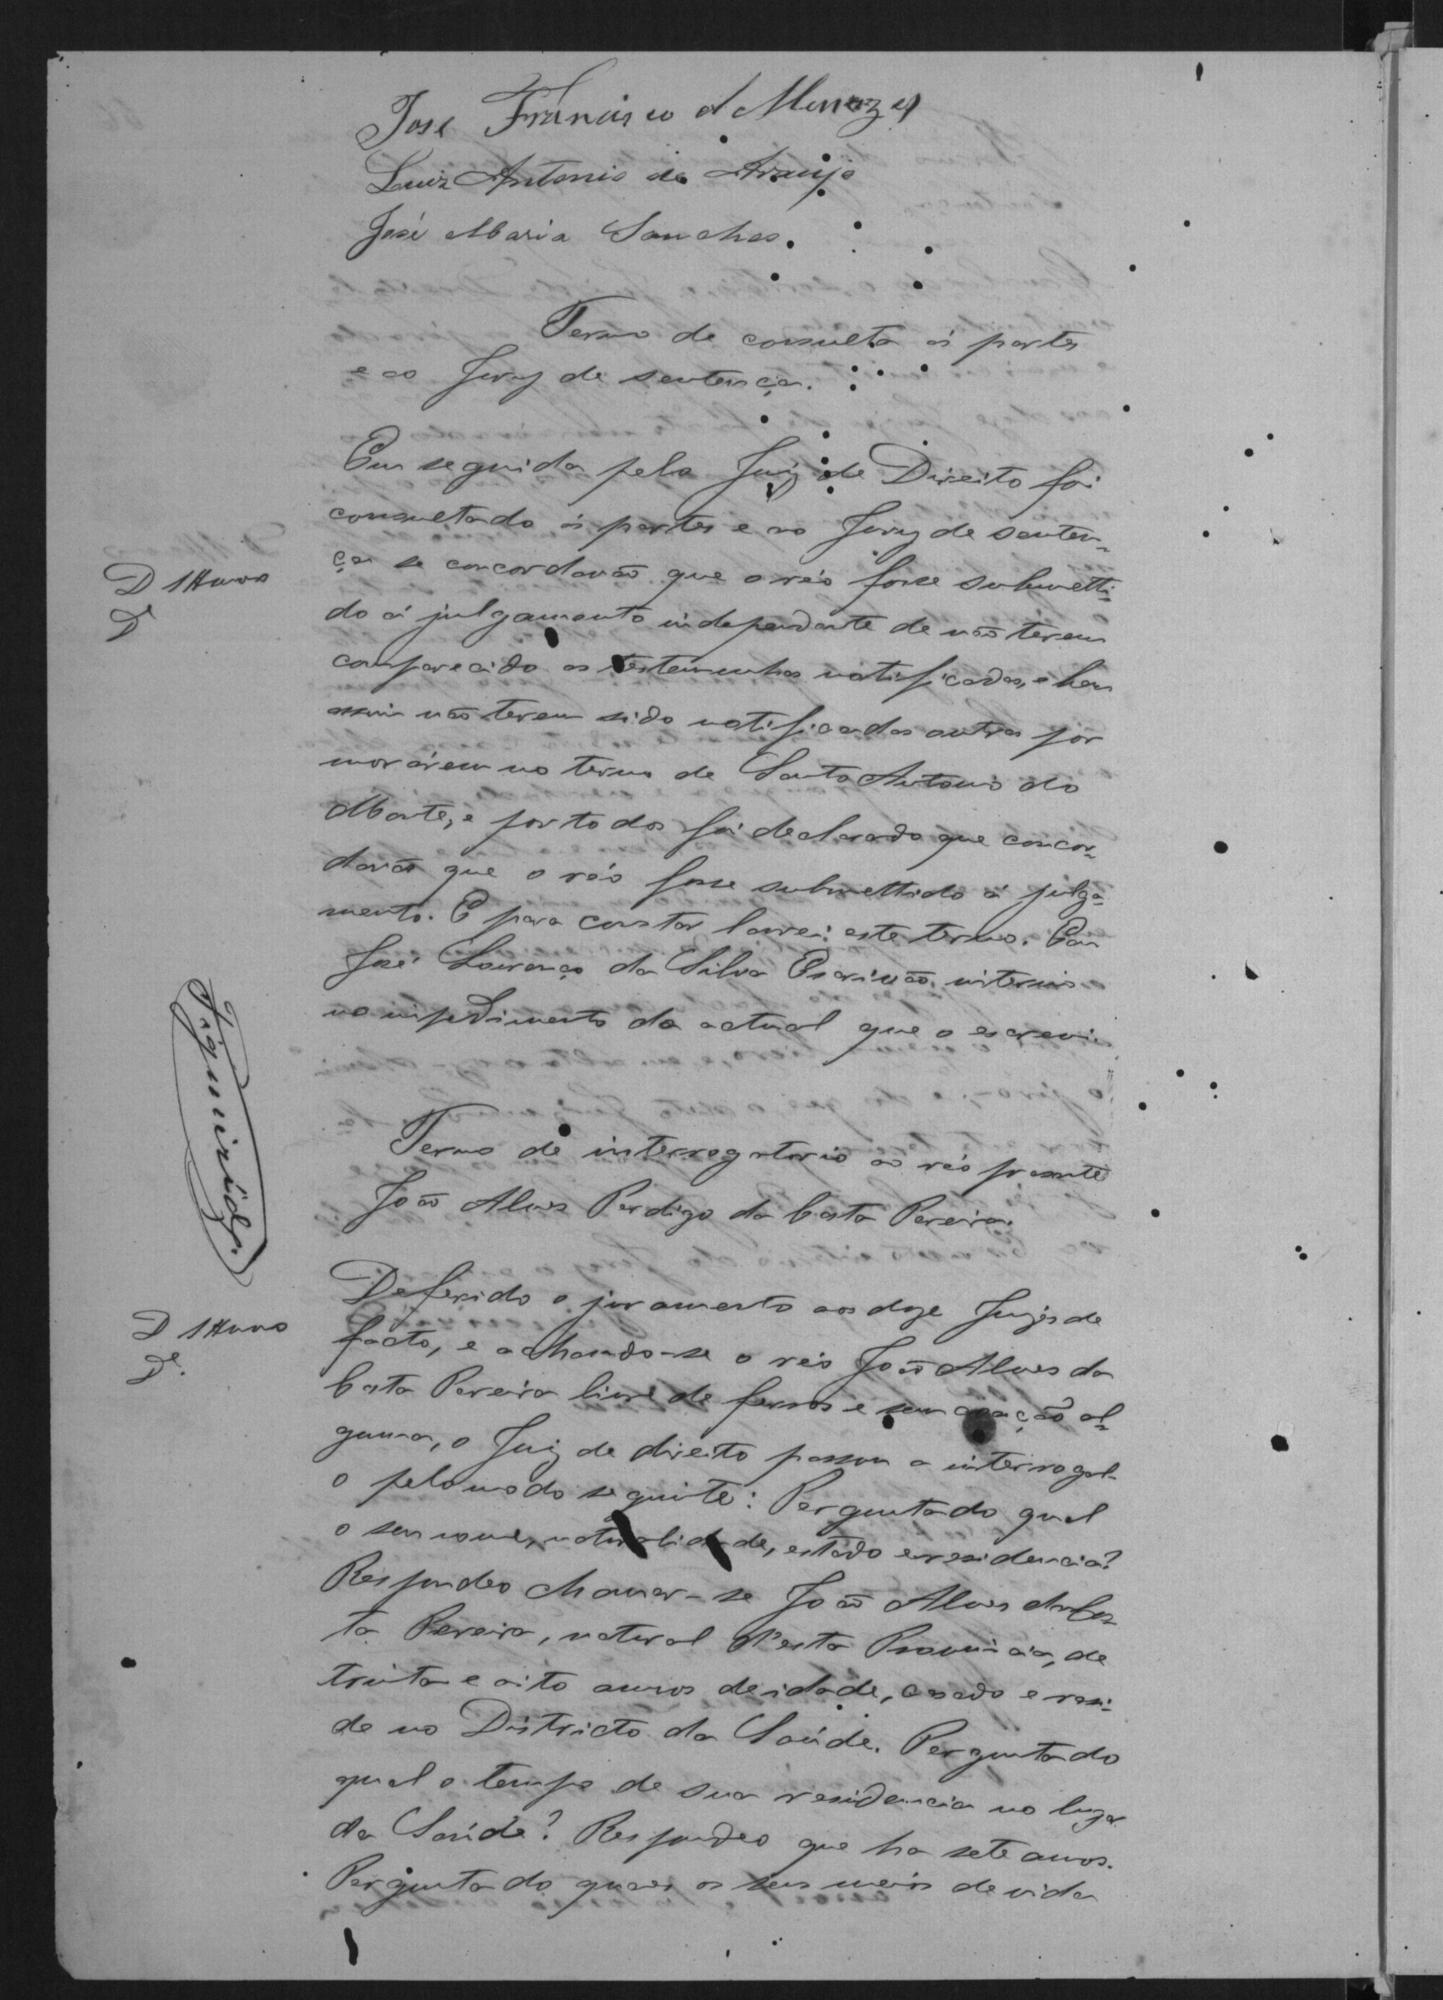 José Francisco d Menezes
Luiz Antonio de Araujo
José Maria Sanches.
Termo de consulta ás partes
e ao Jury de sentença.
Em seguida pelo Juiz de Direito foi
consultado ás partes e ao Jury de senten-
ça se concordavão que o réo fosse submetti-
do á julgamento independente de não terem
comparecido as testemunhas notificadas, e bem
assim não terem sido notificadas outras por
morárem no termo de Santo Antonio do
Monte, e por todos foi declarado que concor-
davão que o réo fosse submettido á julga-
mento. E para constar lavrei este termo. Eu
José Lourenço da Silva Escrivão interino
no impedimento do actual que o escrevi
Figueirêdo.
Termo de interrogatorio ao réo presente
João Alves Perdigo da Costa Pereira.
Deferido o juramento aos doze Juizes de
facto, e achando-se o réo João Alves da
Costa Pereira livre de ferros e sem coacção al-
guma, o Juiz de direito passou a interrogal-
o pelo modo seguinte: Perguntado qual
o seu nome, naturalidade, estado e residencia?
Respondeo chamar-se João Alves da Cos-
ta Pereira, natural d'esta Provincia, de
trinta e oito annos de idade, casado e resi-
de no Districto da Saúde. Perguntado
qual o tempo de sua residencia no lugar
da Saúde? Respondeo que ha sete annos.
Perguntado quaes os seus meios de vida